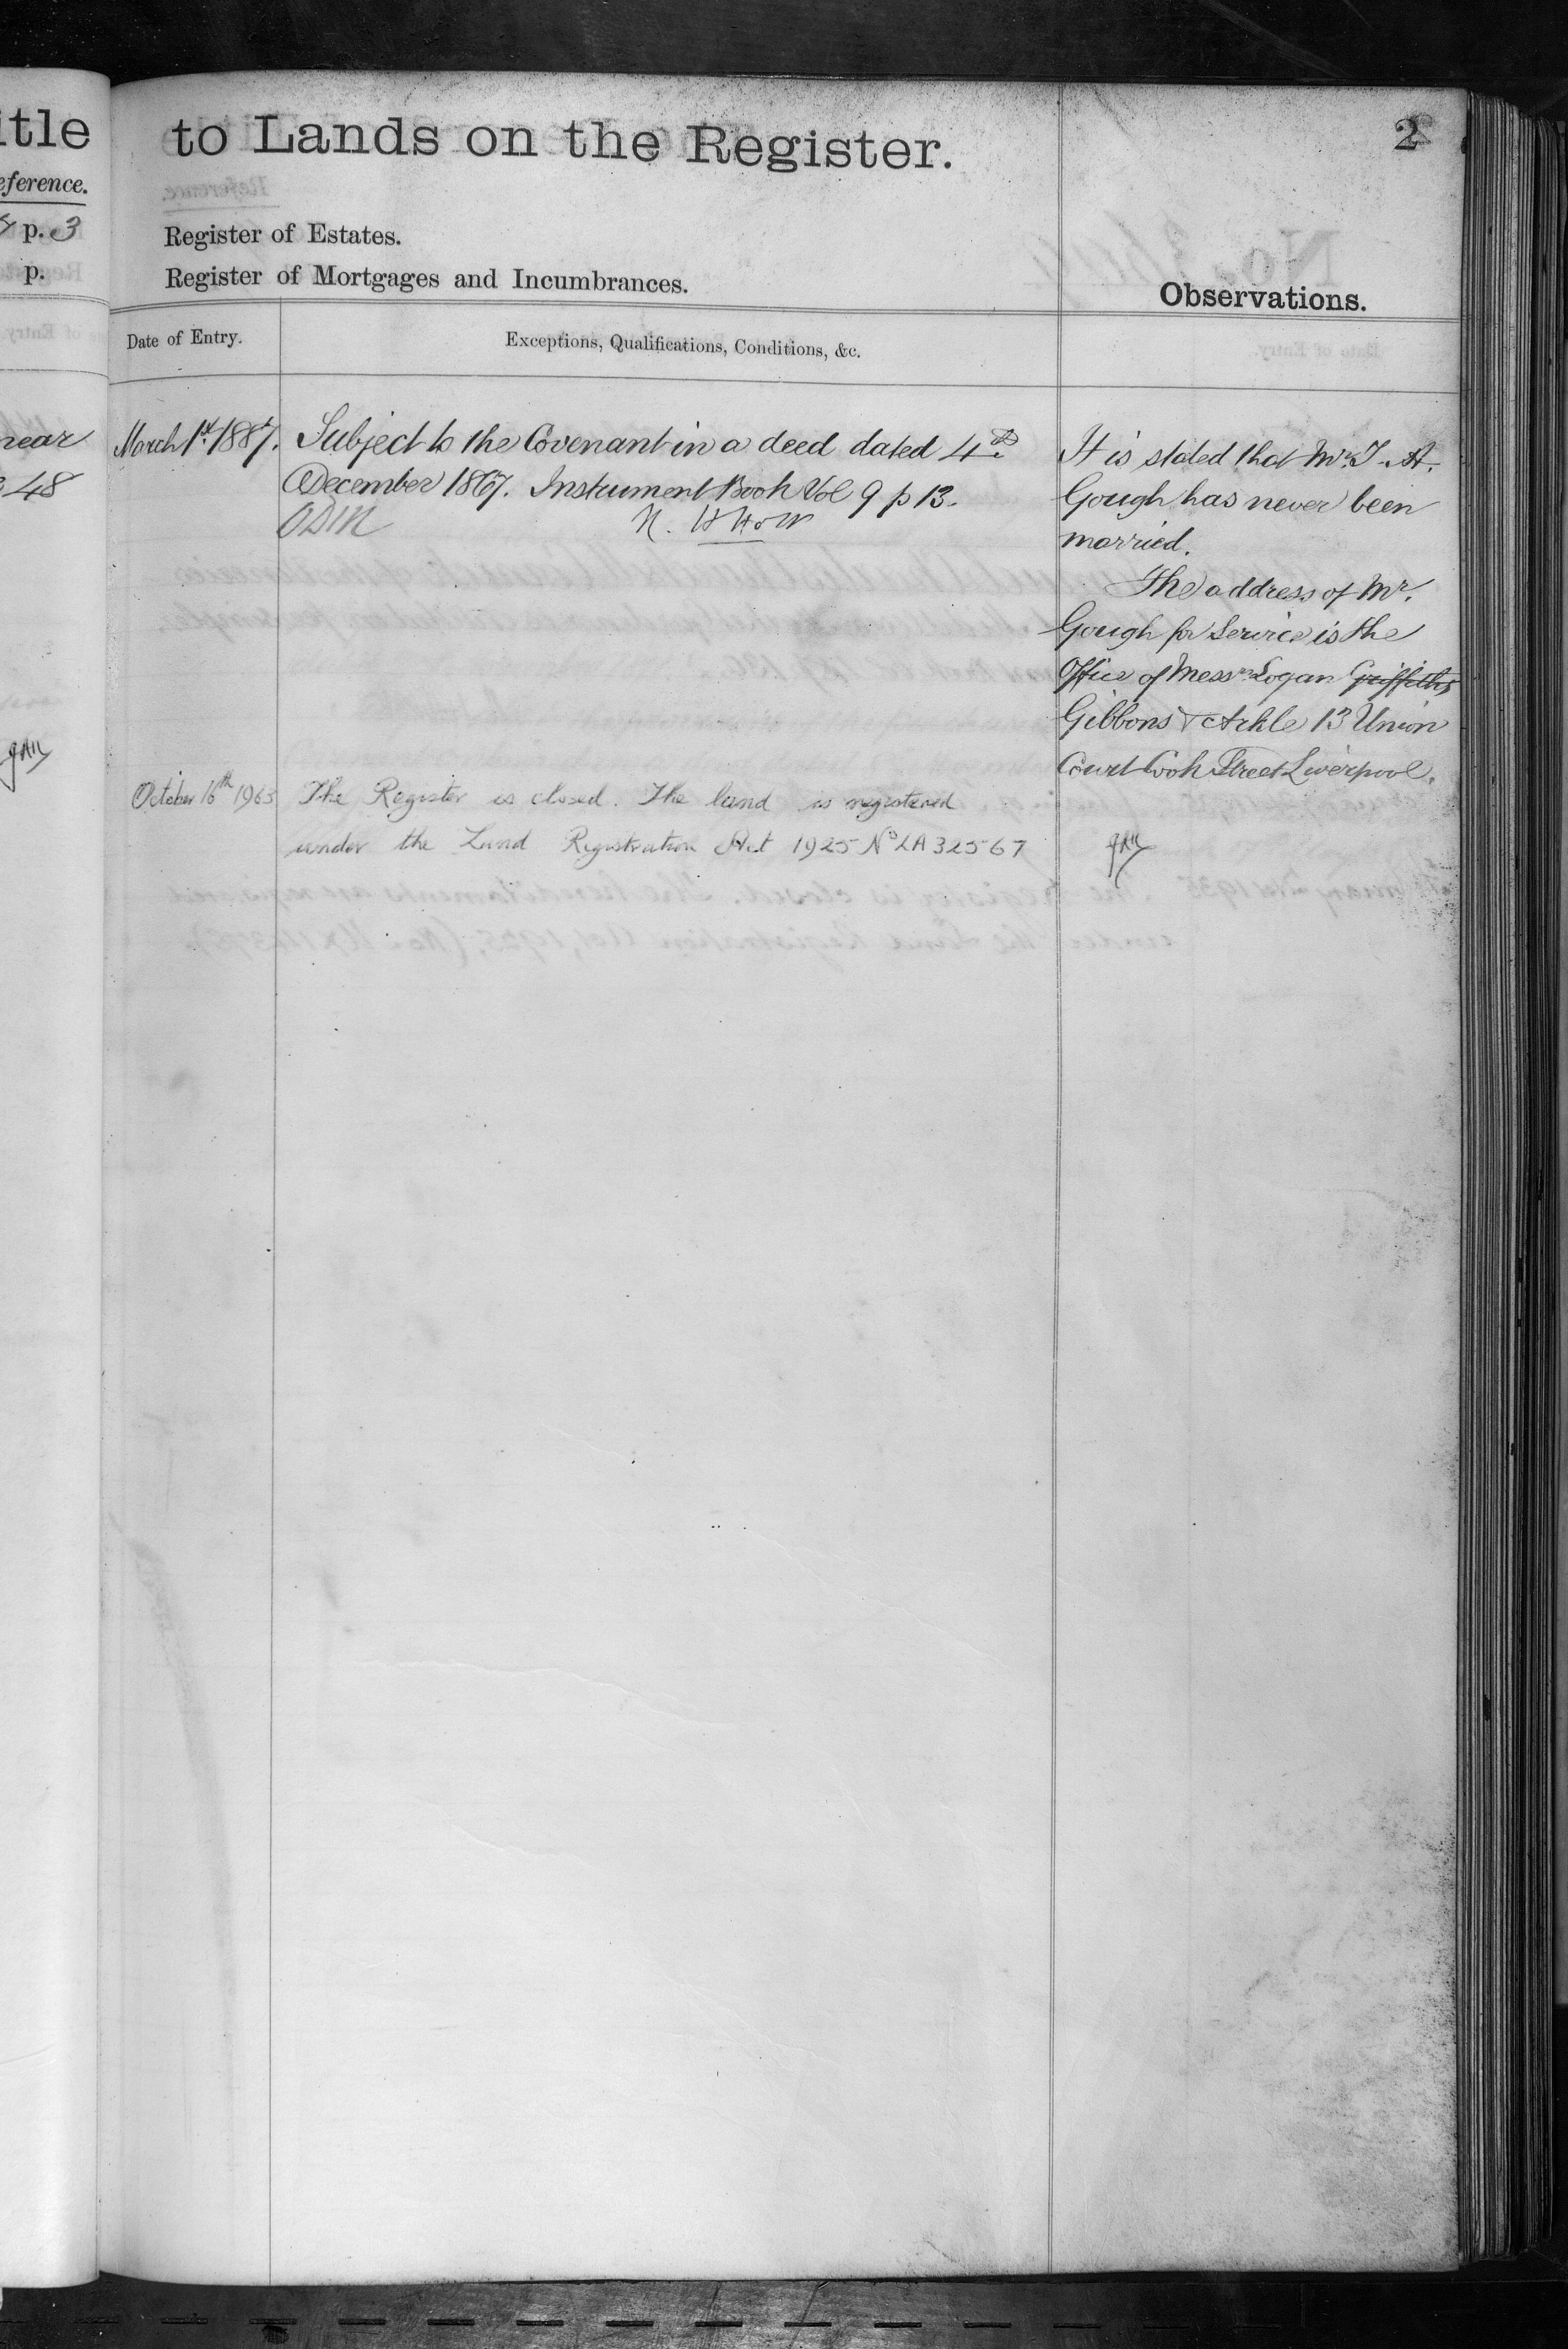 itle
eference.
p. 3
p.
near
48
to Lands on the Register.
2
Register of Estates.
Register of Mortgages and Incumbrances.
Observations.
Date of Entry.
Exceptions, Qualifications, Conditions, &c.
March 1st 1887. Subject to the Covenant in a deed dated 4th
December 1867. Instrument Book Vol 9 p 13.
ODM
It is stated that Mr. T. A.
Gough has never been
married.
The address of Mr.
Gough for Service is the
Office of Messrs Logan Griffiths
Gibbons & Arkle 13 Union
Court Cook Street Liverpool.
October 16th 1963 The Register is closed. The land is registered
under the Land Registration Act 1925 No LA32567